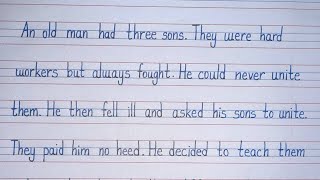 An old man had three sons. They were hard
workers but always fought. He could never unite
them. He then fell ill and asked his sons to unite.
They paid him no heed. He decided to teach them